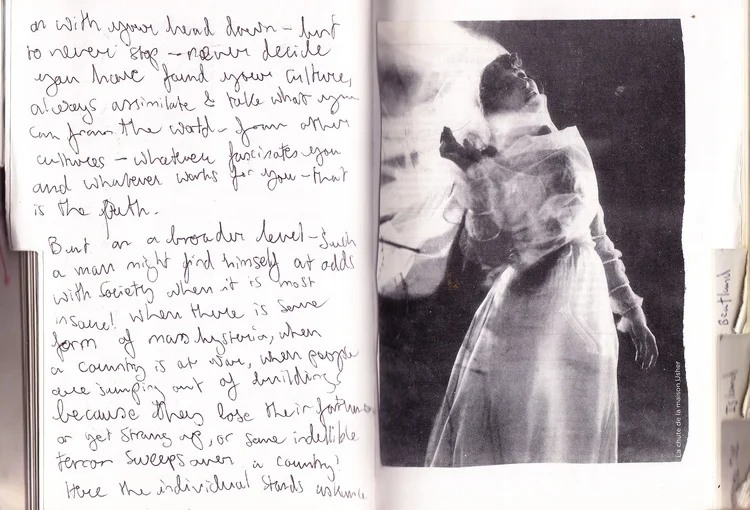 on with your head down – but
to never stop – never decide
you have found your culture,
always assimilate & take what you
can from the world – from other
cultures – whatever fascinates you
and whatever works for you – that
is the path.
But on a broader level – Such
a man might find himself at odds
with Society when it is most
insane! When there is some
form of mass hysteria, when
a country is at war, when people
are jumping out of buildings
because they lose their fortunes
or get strung up, or some indelible
terror sweeps over a country!
Here the individual stands
La chute de la maison Usher
Island